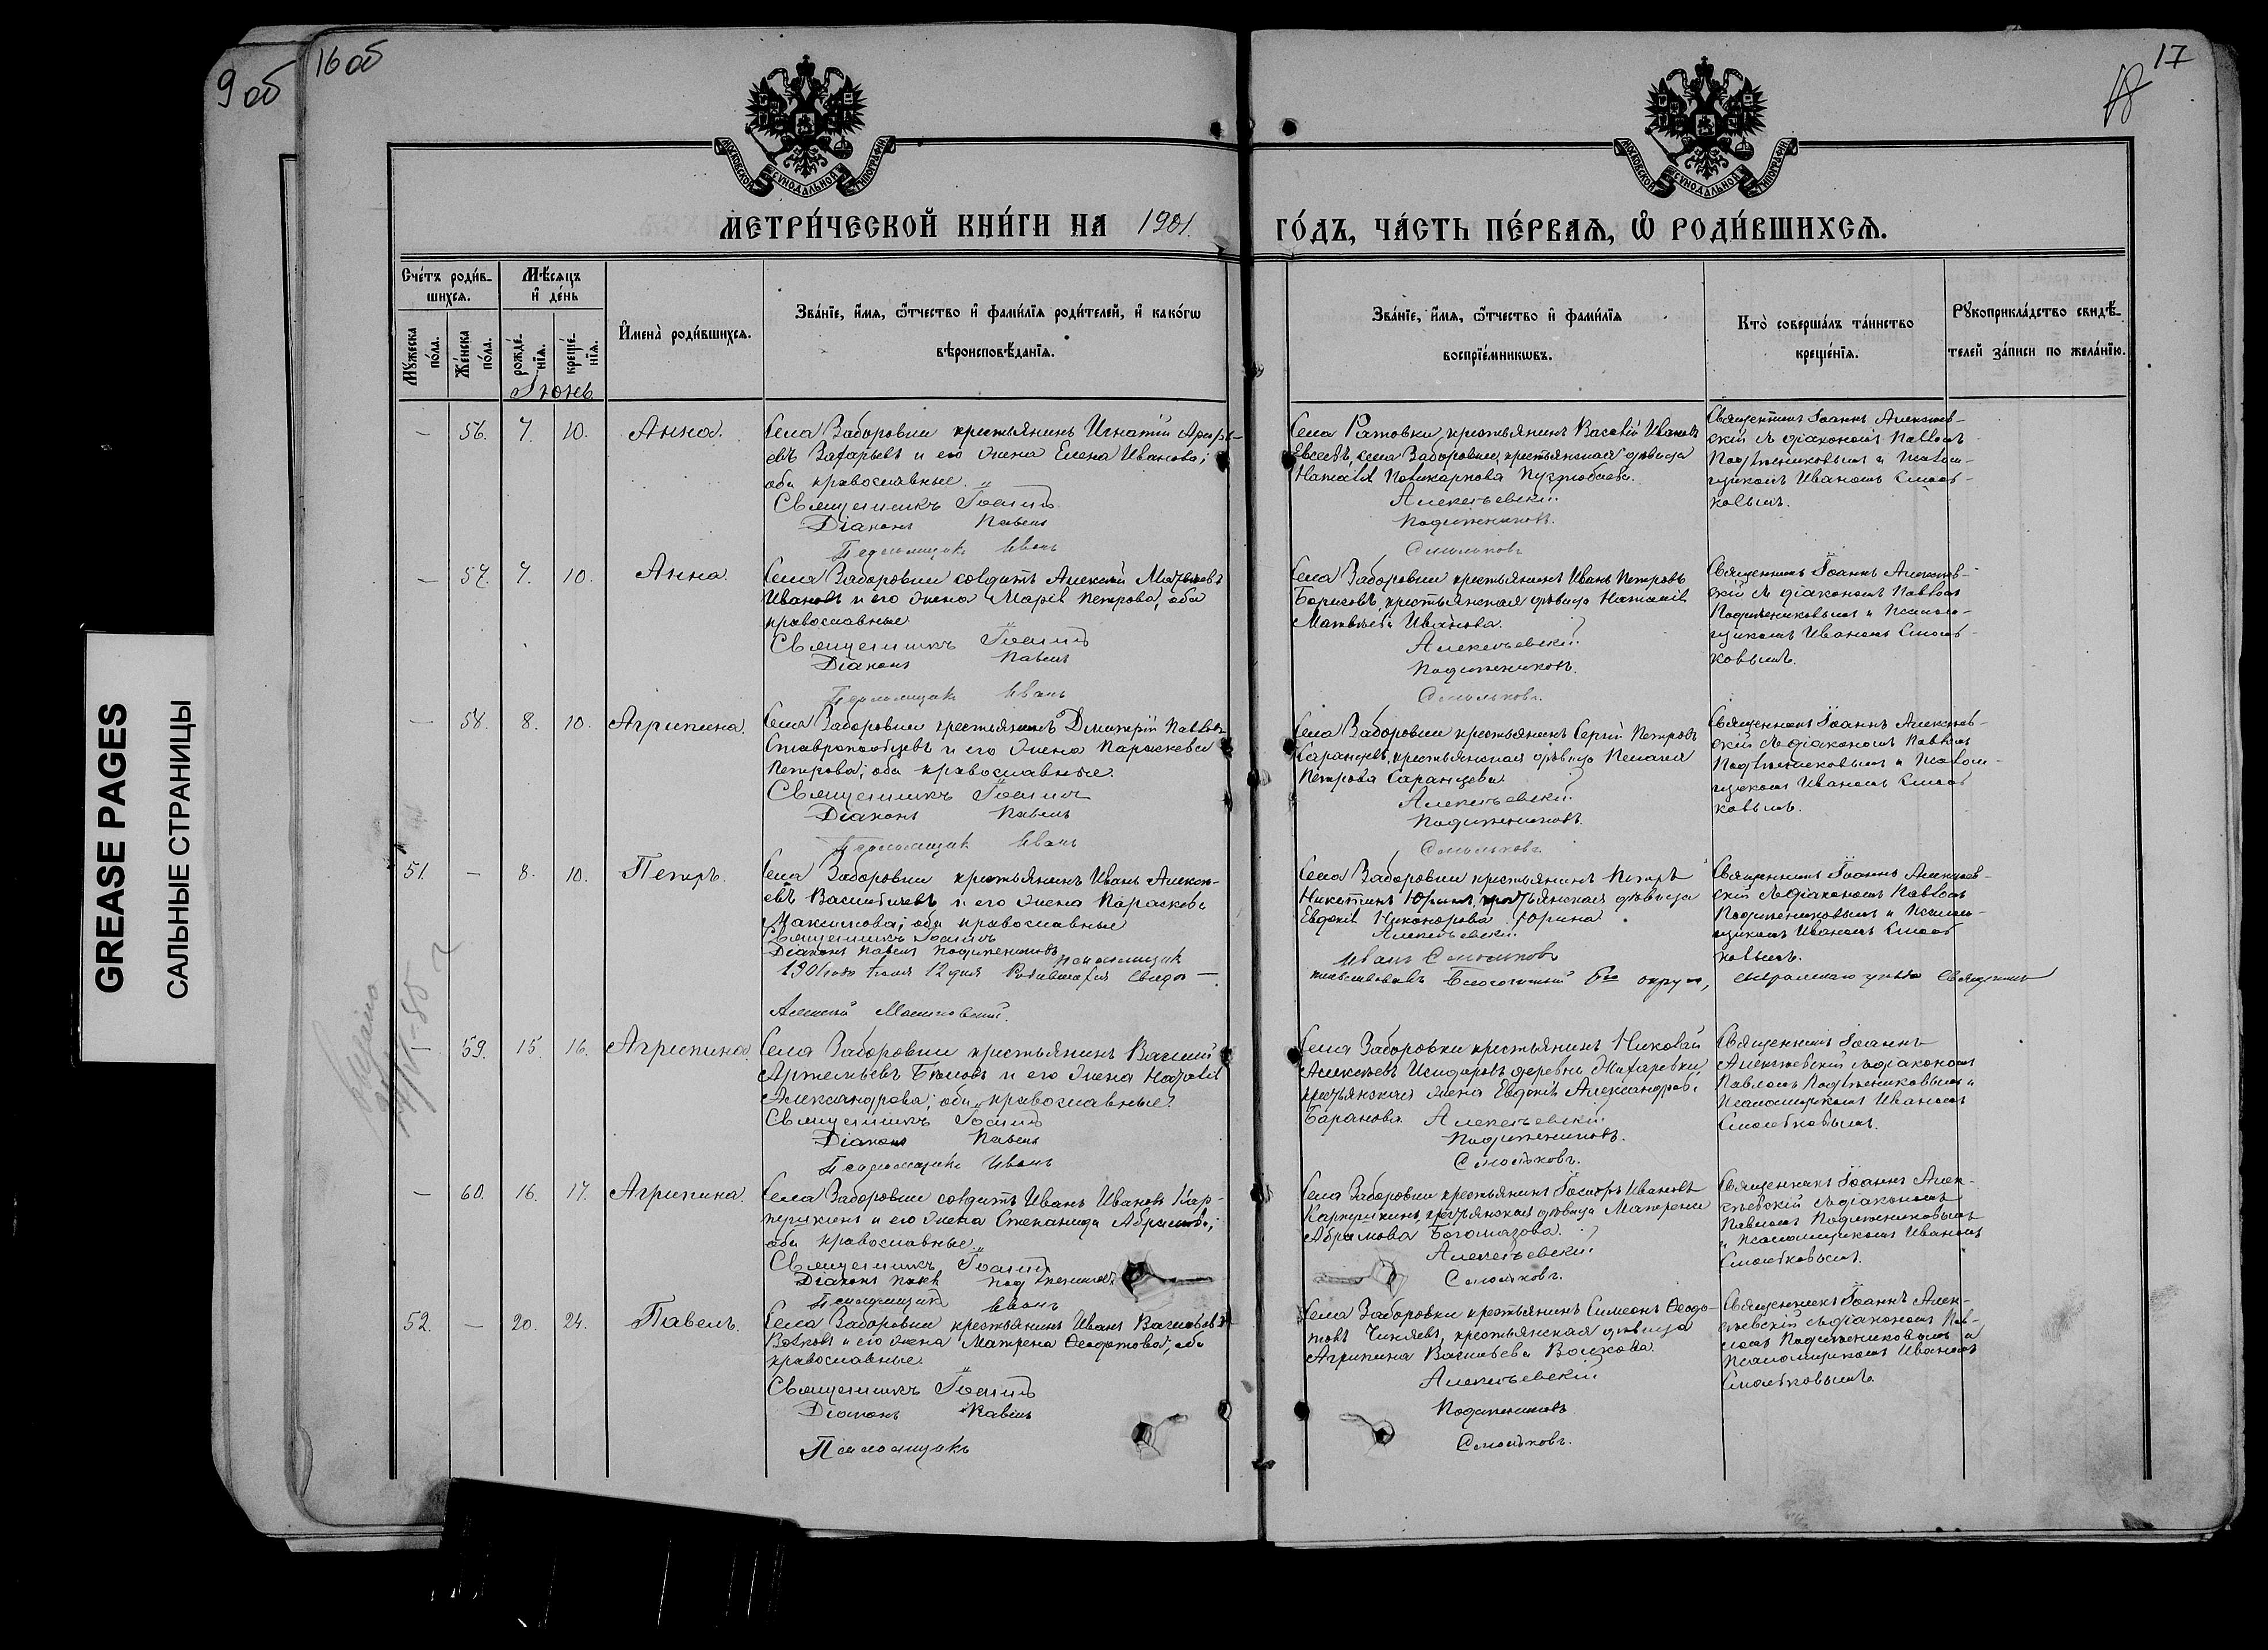 9 об
16 об
17
МОСКОВСКОЙ СУНОДАЛЬНОЙ ТИПОГРАФІИ
МОСКОВСКОЙ СУНОДАЛЬНОЙ ТИПОГРАФІИ
МЕТРИ́ЧЕСКОЙ КНИ́ГИ НА 1901.
ГО́ДЪ, ЧА́СТЬ ПЕ́РВАѦ, Ѽ РОДИ́ВШИХСѦ.
Сче́тъ роди́в-
шихсѧ.
Мꙋ́жеска по́ла.
Же́нска по́ла.
Мѣ́сѧцъ
и҆ де́нь
рожде́-
нїѧ.
креще́-
нїѧ.
Іюнь
И҆мена̀ роди́вшихсѧ.
Зва́нїе, и҆́мѧ, ѻ҆́тчество и҆ фами́лїѧ роди́телей, и҆ како́гѡ
вѣроисповѣ́данїѧ.
Зва́нїе, и҆́мѧ, ѻ҆́тчество и҆ фами́лїѧ
воспрїе́мникѡвъ.
Кто̀ соверша́лъ та́инство
креще́нїѧ.
Рꙋкоприкла́дство свидѣ́-
телей за́писи по жела́нїю.
— 56. 7. 10. Анна.
Села Заборовки крестьянинъ Игнатій
и его жена Елена Иванова;
оба православные.
Священникъ Іоаннъ
Діаконъ Павелъ
Псаломщикъ Иванъ
Села крестьянинъ Василій Ивановъ
Евсеевъ, села Заборовки крестьянская дѣвица
Наталія Поликарпова
Алексѣевскій
Подтяжениковъ.
Смольковъ
Священникъ Іоаннъ Алексѣев-
скій съ діакономъ Павломъ
и Псалом-
щикомъ Иваномъ Смоль-
ковымъ.
— 57. 7. 10. Анна.
Села Заборовки солдатъ Алексій Матвѣевъ
Ивановъ и его жена Марія Петрова, оба
православные
Священникъ Іоаннъ
Діаконъ Павелъ
Псаломщикъ Иванъ
Села Заборовки крестьянинъ Иванъ Петровъ
Борисовъ, крестьянская дѣвица Наталія
Матвѣева Иванова.
Алексѣевскій
Смольковъ.
Священникъ Іоаннъ Алексѣев-
скій съ діакономъ Павломъ
и Псалом-
щикомъ Иваномъ Смоль-
ковымъ.
— 58. 8. 10. Агрипина.
Села Заборовки крестьянинъ Дмитрій Павловъ
Ставропольцевъ и его жена Параскева
Петрова; оба православные.
Священникъ Іоаннъ
Діаконъ Павелъ
Псаломщикъ Иванъ
Села Заборовки крестьянинъ Сергій Петровъ
Саранцевъ, крестьянская дѣвица Пелагія
Петрова Саранцева
Алексѣевскій
Смольковъ.
Священникъ Іоаннъ Алексѣев-
скій съ діакономъ Павломъ
и Псалом-
щикомъ Иваномъ Смоль-
ковымъ.
51. — 8. 10. Петръ.
Села Заборовки крестьянинъ Иванъ Алексѣ-
евъ Васильевъ и его жена Параскева
Максимова; оба православные
Священникъ Іоаннъ
Діаконъ Павелъ
Псаломщикъ
1901 года Іюля 12 дня
Алексій
Села Заборовки крестьянинъ Петръ
Никитинъ Юринъ, крестьянская дѣвица
Евдокія Никанорова Юрина
Алексѣевскій
Иванъ Смольковъ
Благочинный 6го округа, Сызранскаго уѣзда Священникъ
Священникъ Іоаннъ Алексѣев-
скій съ діакономъ Павломъ
и Псалом-
щикомъ Иваномъ Смоль-
ковымъ.
— 59. 15. 16. Агрипина.
Села Заборовки крестьянинъ Василій
Артемьевъ и его жена Наталія
Александрова; оба православные.
Священникъ Іоаннъ
Діаконъ Павелъ
Псаломщикъ Иванъ
Села Заборовки крестьянинъ Николай
Алексѣевъ Исидоровъ, деревни Жихаревки
крестьянская жена Евдокія Александрова
Баранова. Алексѣевскій
Смольковъ.
Священникъ Іоаннъ
Алексѣевскій съ діакономъ
Павломъ и
Псаломщикомъ Иваномъ
Смольковымъ.
— 60. 16. 17. Агрипина.
Села Заборовки солдатъ Иванъ Ивановъ Кар-
пушкинъ и его жена Степанида Абрамова;
оба православные.
Священникъ Іоаннъ
Діаконъ
Псаломщикъ Иванъ
Села Заборовки крестьянинъ Ивановъ
Карпушкинъ, крестьянская дѣвица Матрена
Абрамова Богомазова.
Алексѣевскій
Смольковъ.
Священникъ Іоаннъ Алек-
сѣевскій съ діакономъ
Павломъ
и Псаломщикомъ Иваномъ
Смольковымъ.
52. — 20. 24. Павелъ.
Села Заборовки крестьянинъ Иванъ Васильевъ
Волковъ и его жена Матрена Ѳеодотова; оба
православные
Священникъ Іоаннъ
Діаконъ Павелъ
Псаломщикъ
Села Заборовки крестьянинъ Симеонъ Ѳеодо-
товъ крестьянская дѣвица
Агрипина Васильева Волкова.
Алексѣевскій
Смольковъ.
Священникъ Іоаннъ Алек-
сѣевскій съ діакономъ Пав-
ломъ и
Псаломщикомъ Иваномъ
Смольковымъ.
GREASE PAGES
САЛЬНЫЕ СТРАНИЦЫ